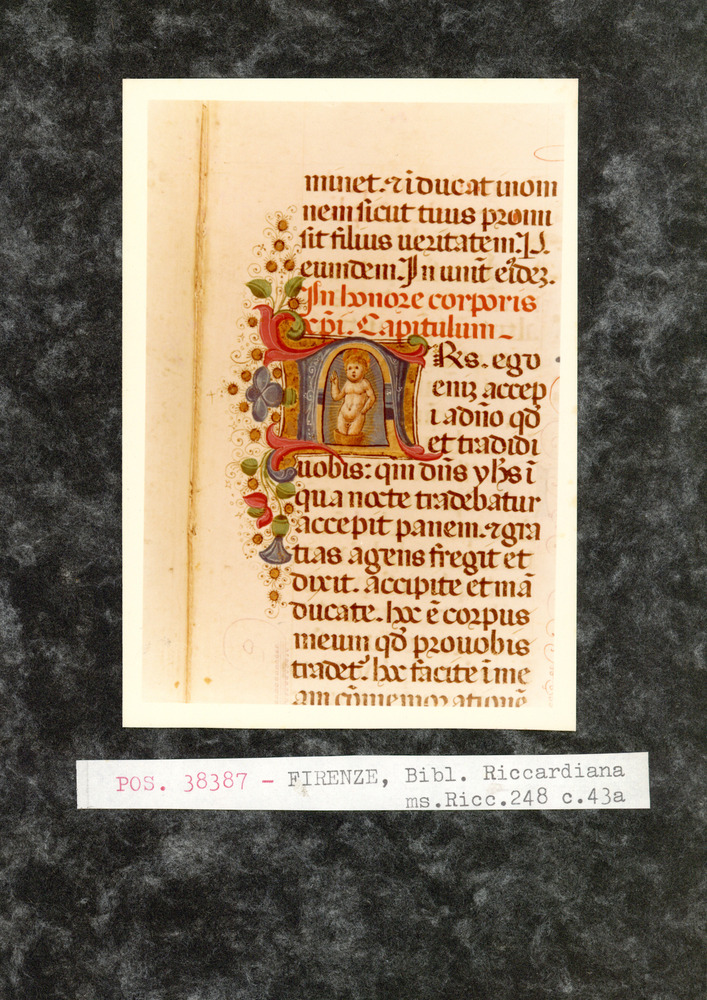 minet. ⁊ iducat inom
nem sicut tuus promi
sit filius ueritatem: P.
eumdem. In unit͞ eͥdez.
In honore corporis
xp̄i. Capitulum
Rs. ego
eniʒ accep
i adn̄o qđ
et tradidi
uobis: qm̄ dn̄s yħs ī
qua nocte tradebatur
accepit panem. ⁊ gra
tias agens fregit et
dixit. accipite et mā
ducate. hoc ē corpus
meum qđ pro uobis
tradet᷑. hoc facite ī me
am cōmemorationē
POS. 38387 - FIRENZE, Bibl. Riccardiana
ms.Ricc.248 c.43a